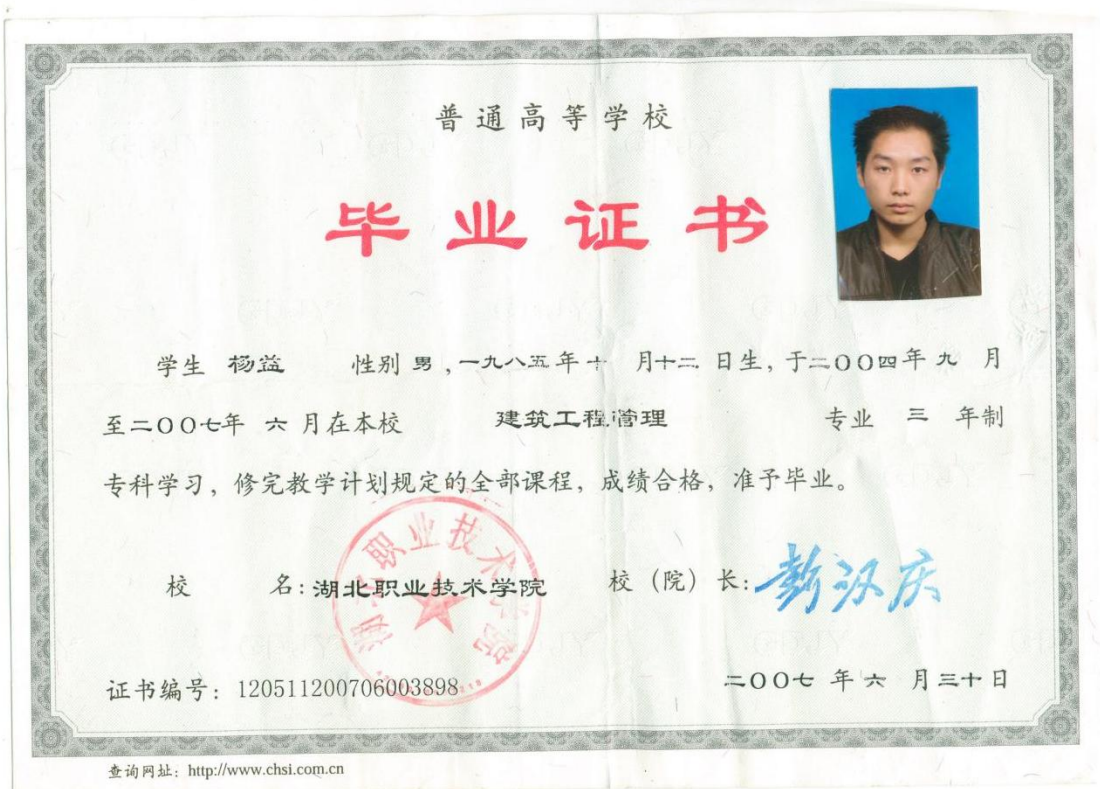 普通高等学校
毕业证书
学生 杨益 性别 男，一九八五年 十 月十二 日生，于二〇〇四年 九 月
至二〇〇七年 六 月在本校 建筑工程管理 专业 三 年制
专科学习，修完教学计划规定的全部课程，成绩合格，准予毕业。
校 名：湖北职业技术学院 校（院）长：彭汉庆
湖北职业技术学院
证书编号：120511200706003898 二〇〇七 年 六 月三十日
查询网址：http://www.chsi.com.cn